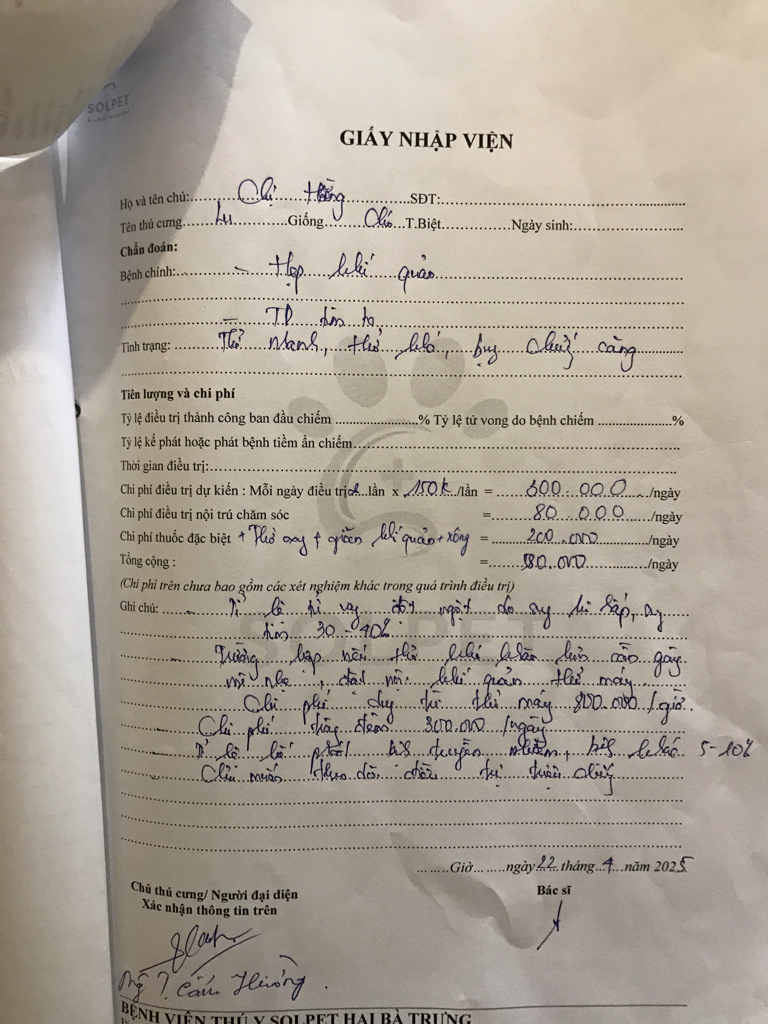 SOLPET
GIẤY NHẬP VIỆN
Họ và tên chủ: Chị Hồng SĐT:
Tên thú cưng Lu Giống Chó T.Biệt Ngày sinh:
Chẩn đoán:
Bệnh chính: - Hẹp khí quản
- TD tim to
Tình trạng: Thở nhanh, thở khó, bụng chướng căng
Tiên lượng và chi phí
Tỷ lệ điều trị thành công ban đầu chiếm % Tỷ lệ tử vong do bệnh chiếm %
Tỷ lệ kế phát hoặc phát bệnh tiềm ẩn chiếm
Thời gian điều trị:
Chi phí điều trị dự kiến : Mỗi ngày điều trị 2 lần x 150k /lần = 300.000 /ngày
Chi phí điều trị nội trú chăm sóc = 80.000 /ngày
Chi phí thuốc đặc biệt + Thở oxy + giãn khí quản + xông = 200.000 /ngày
Tổng cộng : = 80.000 /ngày
(Chi phí trên chưa bao gồm các xét nghiệm khác trong quá trình điều trị)
Ghi chú: Tỉ lệ đột ngột do suy hô hấp, suy
tim 30 - 40%
Trường hợp nếu thở khó khăn hơn cần gây
mê nhẹ, đặt nội khí quản thở máy
Chi phí duy trì thở máy 800.000 /giờ.
Chi phí đêm 300.000 /ngày
Tỉ lệ bội phát truyền nhiễm, khác 5-10%
Chủ muốn theo dõi điều trị
Giờ ngày 22 tháng 4 năm 2025
Chủ thú cưng/ Người đại diện
Xác nhận thông tin trên
Bác sĩ
Ng T. Cẩm Hường
BỆNH VIỆN THÚ Y SOLPET HAI BÀ TRƯNG